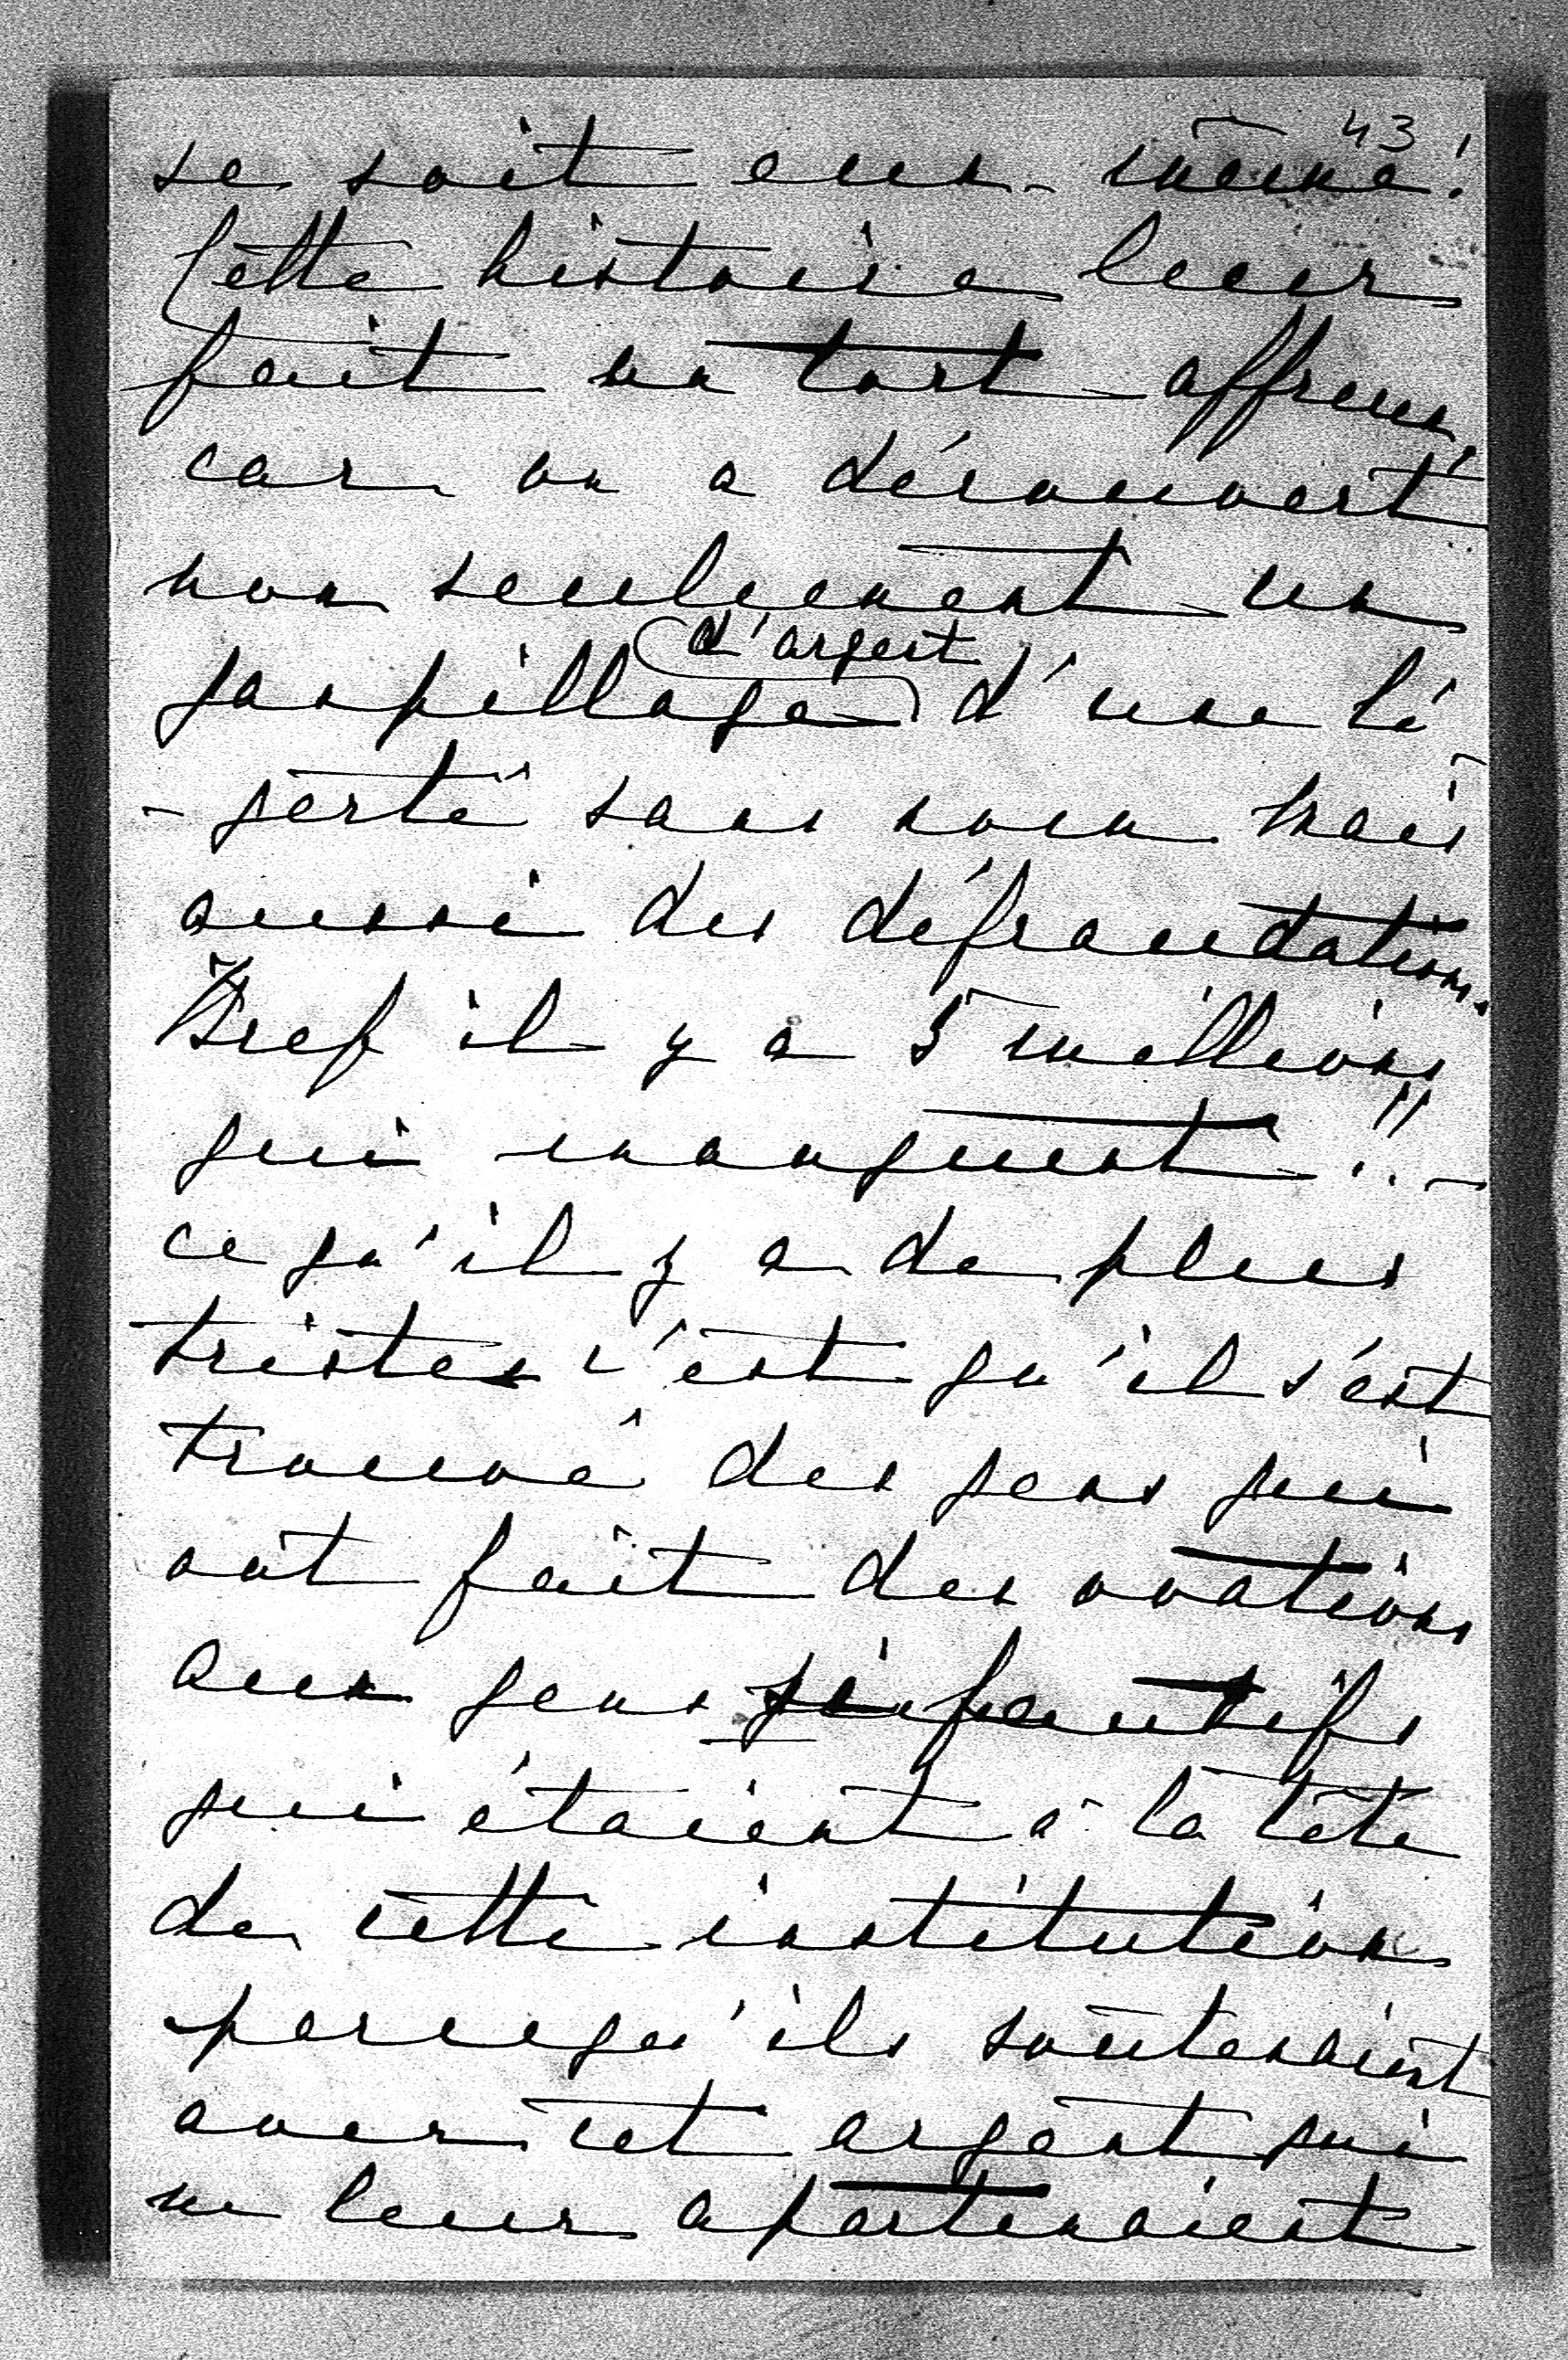 43
se soit eux-même!
Cette histoire leur
fait un tort affreux,
car on a découvert
non seulement un
gaspillage d'argent d'une lé
-gerté sans nom mais
aussi des défraudations.
Bref il y a 5 millions
qui manquent!! -
ce qu'il y a de plus
tristes c'est qu'il s'est
trouvé des gens qui
ont fait des ovations
aux gens
qui étaient à la tête
de cette institution
parcequ'ils soutenaient
avec cet argent qui
ne leur apartenaient